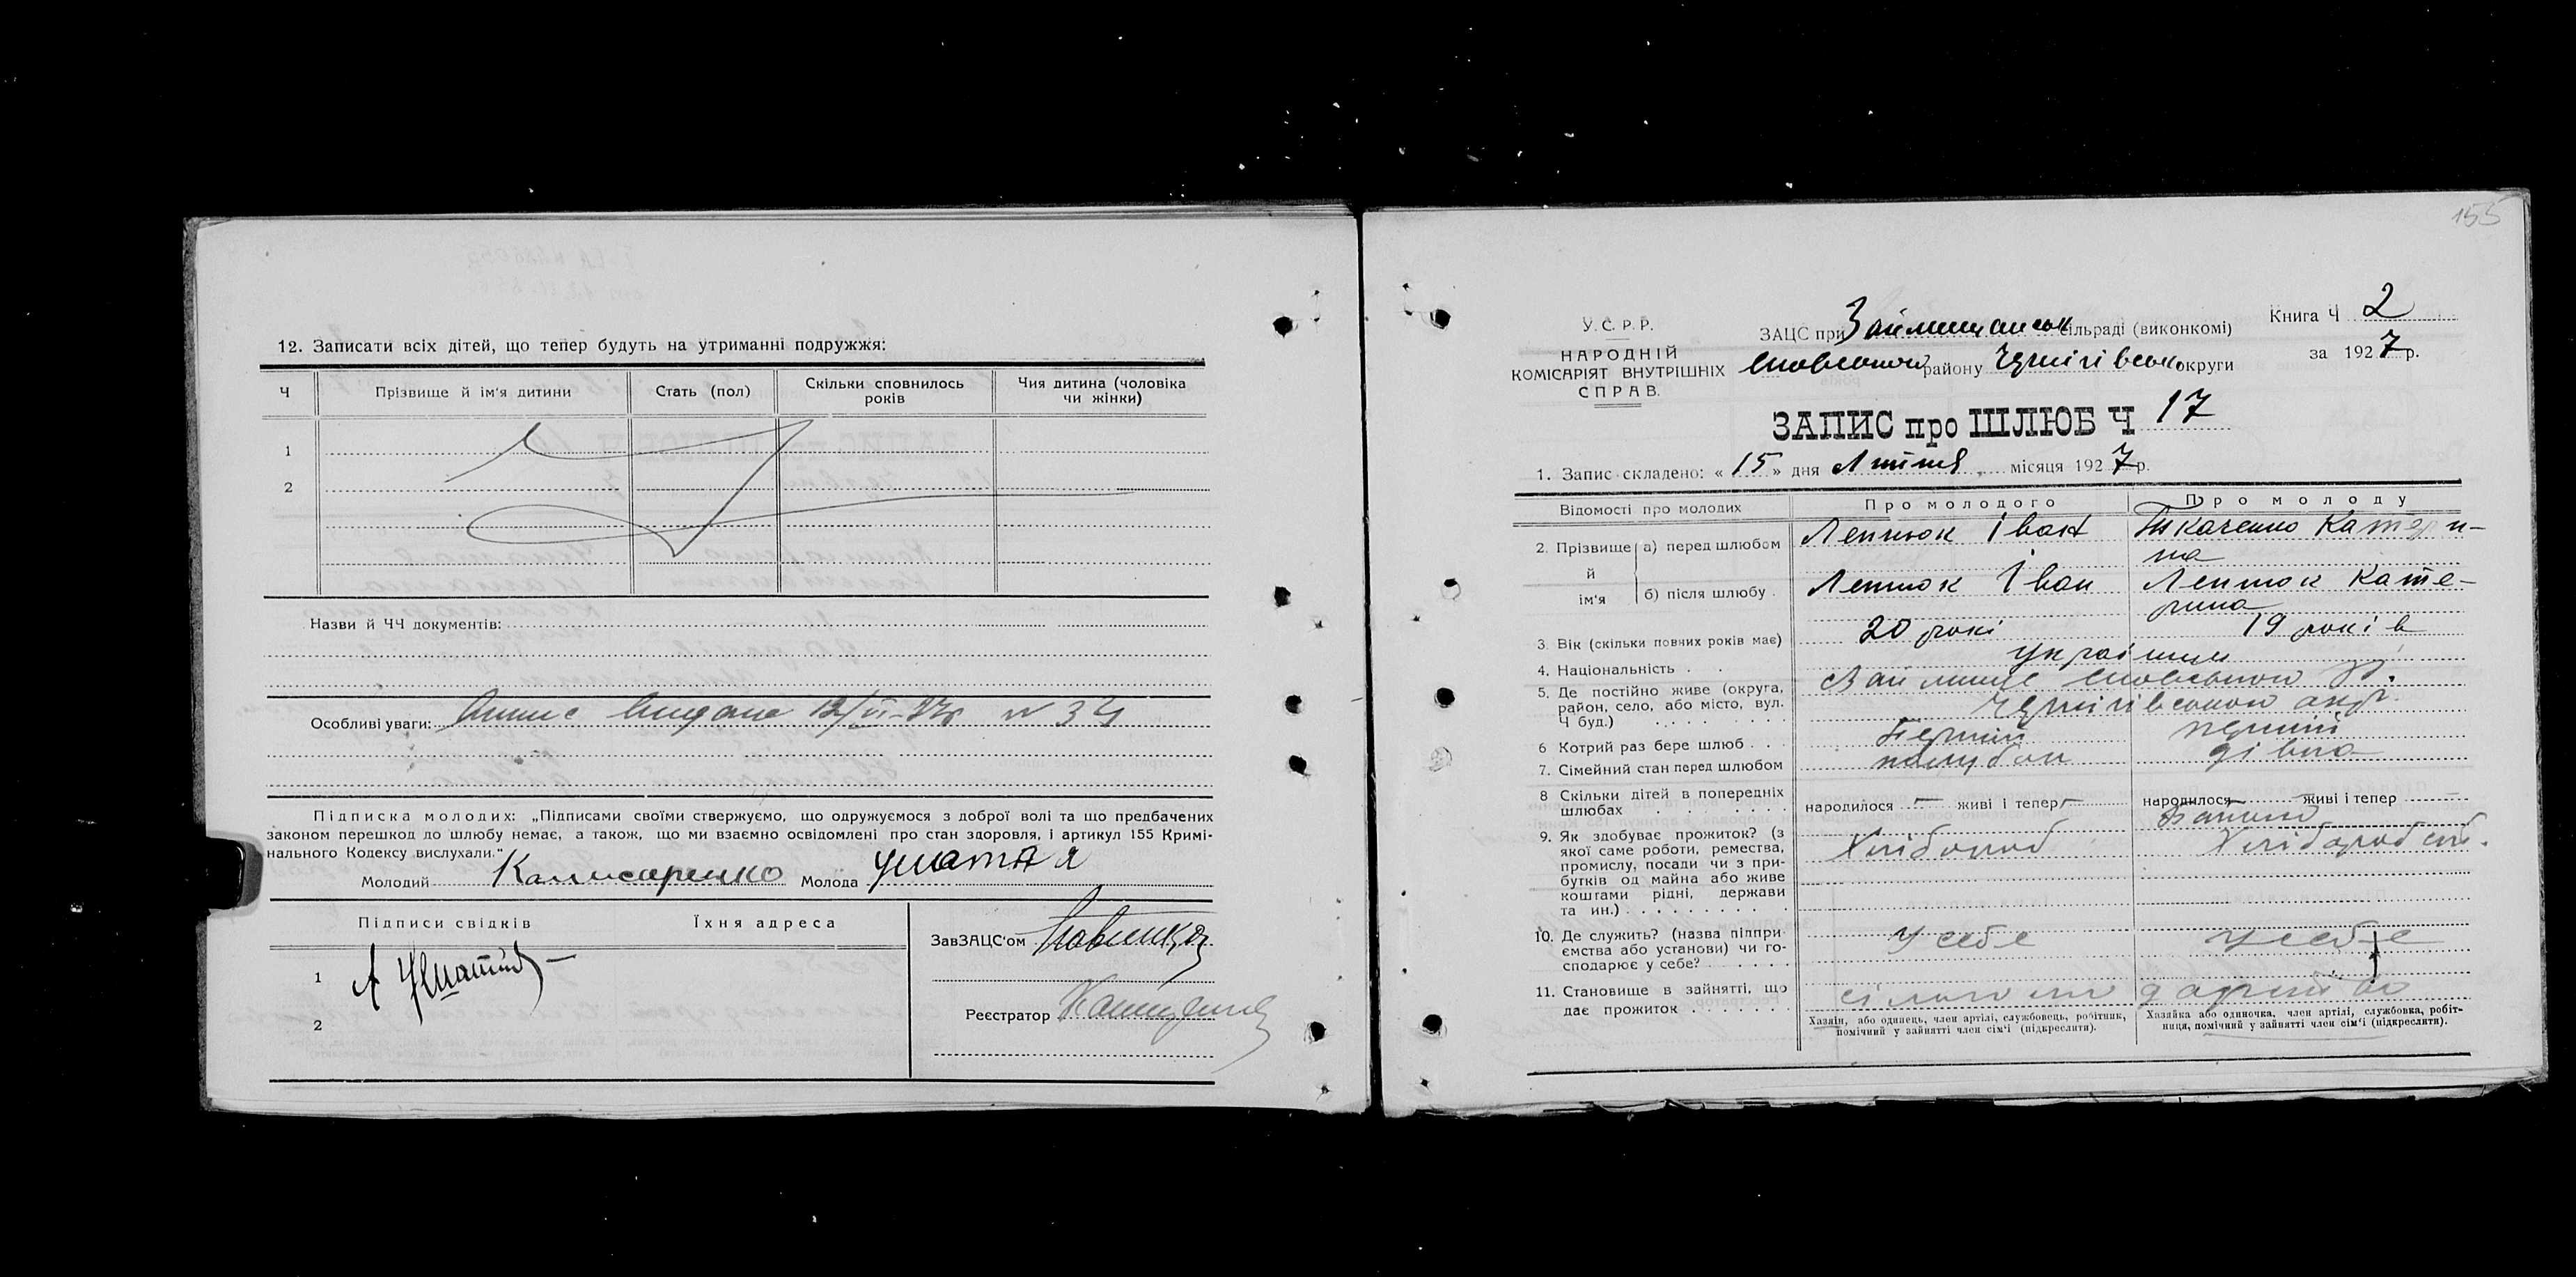 12. Записати всіх дітей, що тепер будуть на утриманні подружжя:
Ч Прізвище й ім'я дитини Стать (пол) Скільки сповнилось років Чия дитина (чоловіка чи жінки)
1
2
Назви й ЧЧ документів:
Особливі уваги: 12/VI-27р N 34
Підписка молодих: „Підписами своїми стверджуємо, що одружуємося з доброї волі та що предбачених
законом перешкод до шлюбу немає, а також, що ми взаємно освідомлені про стан здоровля, і артикул 155 Кримі-
нального Кодексу вислухали."
Молодий Комисаренко Молода
Підписи свідків Їхня адреса
1
2
ЗавЗАЦС'ом
Реєстратор
155
У.С.Р.Р.
НАРОДНІЙ
КОМІСАРІЯТ ВНУТРІШНІХ
СПРАВ.
ЗАЦС при Займищанськ сільраді (виконкомі)
Сновського району Чернігівськ округи
Книга Ч 2
за 1927 р.
ЗАПИС про ШЛЮБ Ч 17
1. Запис складено: « 15 » дня місяця 1927 р.
Відомості про молодих Про молодого Про молоду
2. Прізвище й ім'я а) перед шлюбом Іван Ткаченко Катери-
на
б) після шлюбу Іван Кате-
рина
3. Вік (скільки повних років має) 20 рокі 19 років
4. Національність українці
5. Де постійно живе (округа, Займище Сновського р.
район, село, або місто, вул. Чернігівського окр.
Ч буд.)
6 Котрий раз бере шлюб Перший перший
7. Сімейний стан перед шлюбом парубок дівка
8 Скільки дітей в попередніх
шлюбах народилося — живі і тепер — народилося — живі і тепер —
9. Як здобуває прожиток? (з
якої саме роботи, ремества, Хлібороб
промислу, посади чи з при-
бутків од майна або живе
коштами рідні, держави
та ин.)
10. Де служить? (назва підпри- У себе У себе
ємства або установи) чи го-
сподарює у себе?
11. Становище в зайнятті, що
дає прожиток
Хазяїн, або одинець, член артілі, службовець, робітник,
помічний у зайнятті член сім'ї (підкреслити).
Хазяйка або одиночка, член артілі, службовка, робіт-
ниця, помічний у зайнятті член сім'ї (підкреслити).